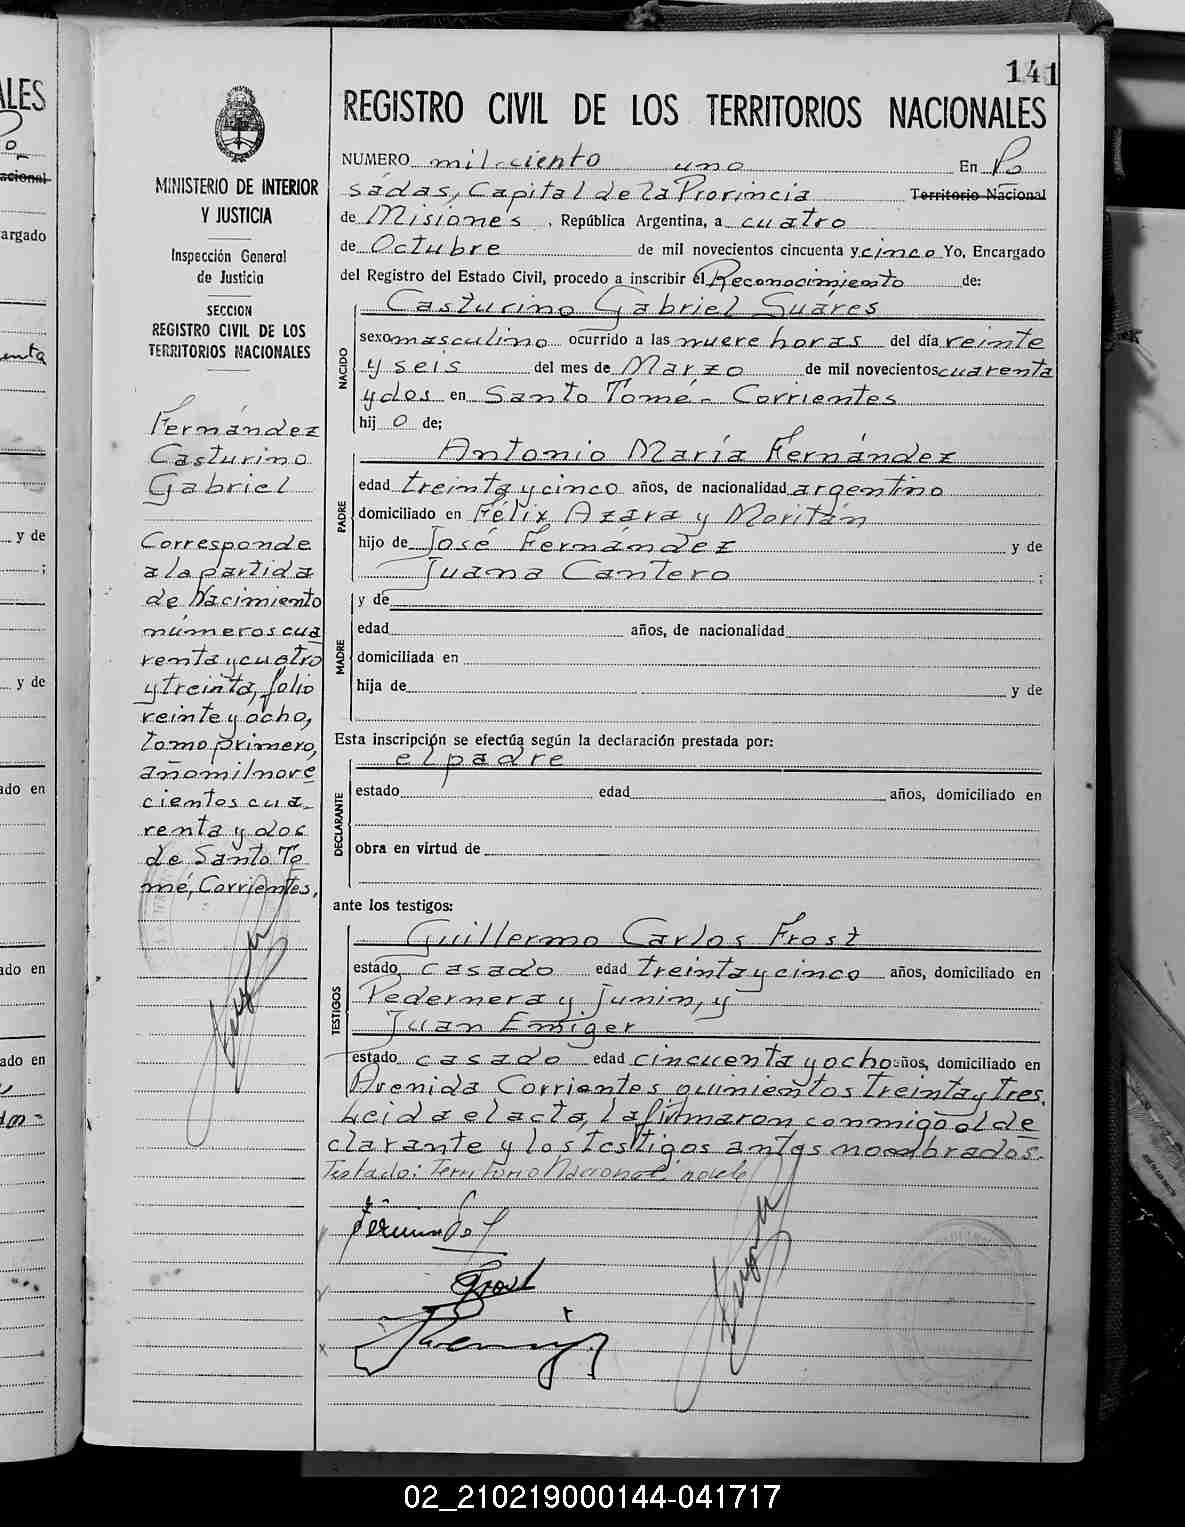 141
REGISTRO CIVIL DE LOS TERRITORIOS NACIONALES
MINISTERIO DE INTERIOR
Y JUSTICIA
Inspección General
de Justicia
SECCION
REGISTRO CIVIL DE LOS
TERRITORIOS NACIONALES
Fernandez
Casturino
Gabriel
Corresponde
a la partida
de Nacimiento
números cua
renta y cuatro
y treinta, folio
veinte y ocho,
tomo primero,
año mil nove
cientos cua
renta y dos
de Santo To
mé, Corrientes.
NUMERO mil ciento uno En Po
sadas, Capital de la Provincia Territorio Nacional
de Misiones, República Argentina, a cuatro
de Octubre de mil novecientos cincuenta y cinco Yo, Encargado
del Registro del Estado Civil, procedo a inscribir el Reconocimiento de:
Casturino Gabriel Suáres
NACIDO
sexo masculino ocurrido a las nueve horas del día veinte
y seis del mes de Marzo de mil novecientos cuarenta
y dos en Santo Tomé - Corrientes
hij o de;
Antonio María Fernández
PADRE
edad treinta y cinco años, de nacionalidad argentino
domiciliado en Félix Azara y Moritán
hijo de José Fernández y de
Juana Cantero ;
y de
MADRE
edad años, de nacionalidad
domiciliada en
hija de y de
Esta inscripción se efectúa según la declaración prestada por:
el padre
DECLARANTE
estado edad años, domiciliado en
obra en virtud de
ante los testigos:
Guillermo Carlos Frost
TESTIGOS
estado casado edad treinta y cinco años, domiciliado en
Pedernera y Junin, y
Juan Emiger
estado casado edad cincuenta y ocho años, domiciliado en
Avenida Corrientes quinientos treinta y tres.
Leida el acta, la firmaron conmigo el de
clarante y los testigos antes nombrados.
Testado: Territorio Nacional, no vale
Frost
ALES
acional
argado
y de
;
y de
ado en
ado en
ado en
02_210219000144-041717